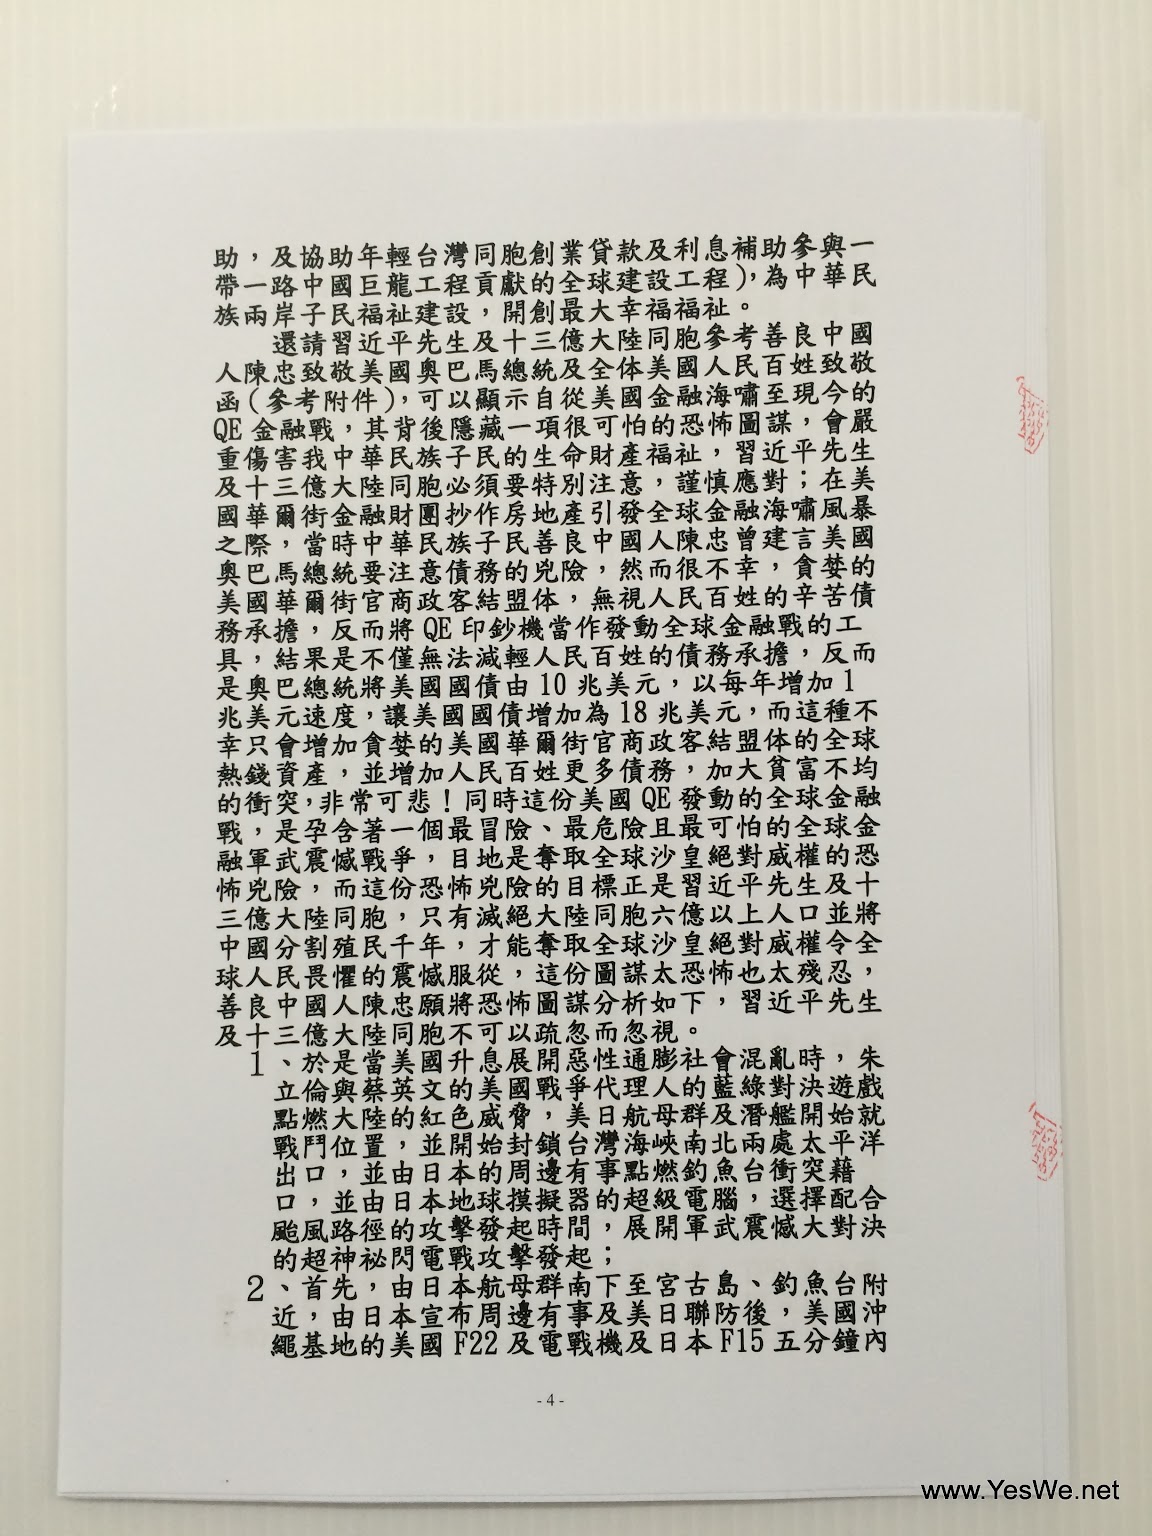 助，及協助年輕台灣同胞創業貸款及利息補助參與一
帶一路中國巨龍工程貢獻的全球建設工程)，為中華民
族兩岸子民福祉建設，開創最大幸福福祉。
還請習近平先生及十三億大陸同胞參考善良中國
人陳忠致敬美國奧巴馬總統及全体美國人民百姓致敬
函(參考附件)，可以顯示自從美國金融海嘯至現今的
QE金融戰，其背後隱藏一項很可怕的恐怖圖謀，會嚴
重傷害我中華民族子民的生命財產福祉，習近平先生
及十三億大陸同胞必須要特別注意，謹慎應對；在美
國華爾街金融財團抄作房地產引發全球金融海嘯風暴
之際，當時中華民族子民善良中國人陳忠曾建言美國
奧巴馬總統要注意債務的兇險，然而很不幸，貪婪的
美國華爾街官商政客結盟体，無視人民百姓的辛苦債
務承擔，反而將QE印鈔機當作發動全球金融戰的工
具，結果是不僅無法減輕人民百姓的債務承擔，反而
是奧巴總統將美國國債由10兆美元，以每年增加1
兆美元速度，讓美國國債增加為18兆美元，而這種不
幸只會增加貪婪的美國華爾街官商政客結盟体的全球
熱錢資產，並增加人民百姓更多債務，加大貧富不均
的衝突，非常可悲！同時這份美國QE發動的全球金融
戰，是孕含著一個最冒險、最危險且最可怕的全球金
融軍武震憾戰爭，目地是奪取全球沙皇絕對威權的恐
怖兇險，而這份恐怖兇險的目標正是習近平先生及十
三億大陸同胞，只有滅絕大陸同胞六億以上人口並將
中國分割殖民千年，才能奪取全球沙皇絕對威權令全
球人民畏懼的震憾服從，這份圖謀太恐怖也太殘忍，
善良中國人陳忠願將恐怖圖謀分析如下，習近平先生
及十三億大陸同胞不可以疏忽而忽視。
1、於是當美國升息展開惡性通膨社會混亂時，朱
立倫與蔡英文的美國戰爭代理人的藍綠對決遊戲
點燃大陸的紅色威脅，美日航母群及潛艦開始就
戰鬥位置，並開始封鎖台灣海峽南北兩處太平洋
出口，並由日本的周邊有事點燃釣魚台衝突藉
口，並由日本地球摸擬器的超級電腦，選擇配合
颱風路徑的攻擊發起時間，展開軍武震憾大對決
的超神祕閃電戰攻擊發起；
2、首先，由日本航母群南下至宮古島、釣魚台附
近，由日本宣布周邊有事及美日聯防後，美國沖
繩基地的美國F22及電戰機及日本F15五分鐘內
-4-
www.YesWe.net